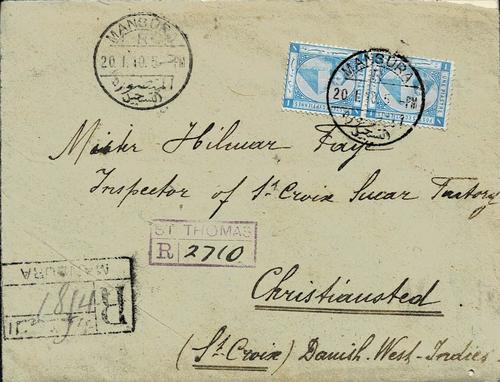 MANSURA
R
20.I.10.5-PM
المنصورة
MANSURA
R
20.I.10.5-PM
Mister Hilmar Faye
Inspector of St Croix Sucar Factory
ST THOMAS
R 2710
MANSURA
R
Christiansted
(St Croix) Danish-West-Indies